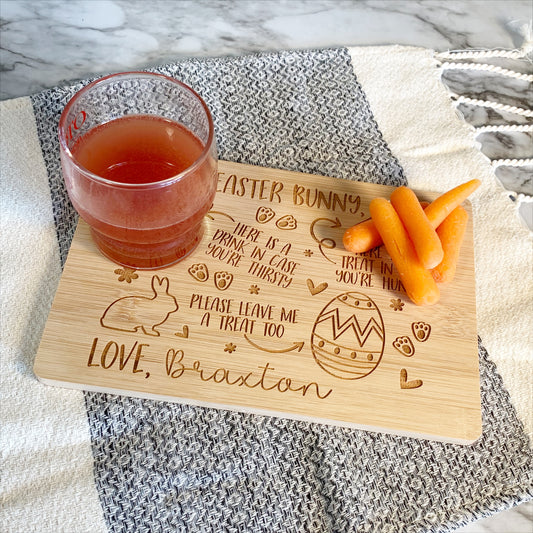 EASTER BUNNY,
HERE IS A
DRINK IN CASE
YOU'RE THIRSTY
TREAT IN
YOU'RE
PLEASE LEAVE ME
A TREAT TOO
LOVE, Braxton